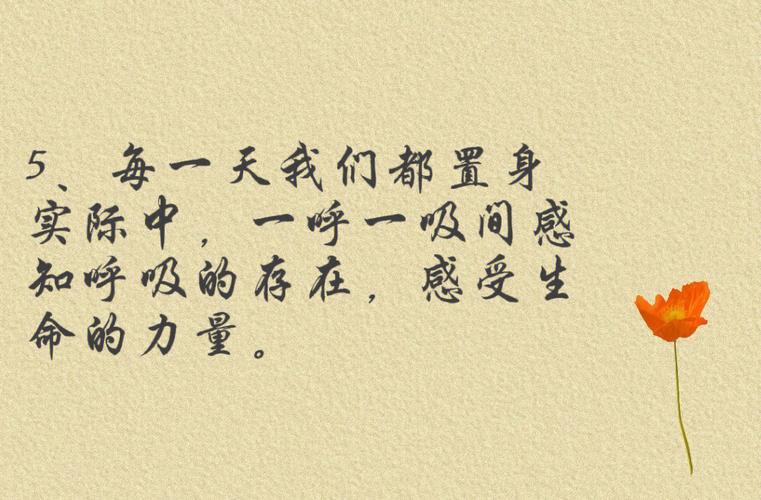 5、每一天我们都置身
实际中，一呼一吸间感
知呼吸的存在，感受生
命的力量。